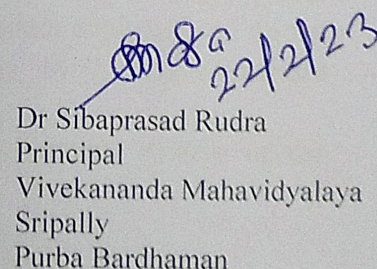 22/2/23
Dr Sibaprasad Rudra
Principal
Vivekananda Mahavidyalaya
Sripally
Purba Bardhaman